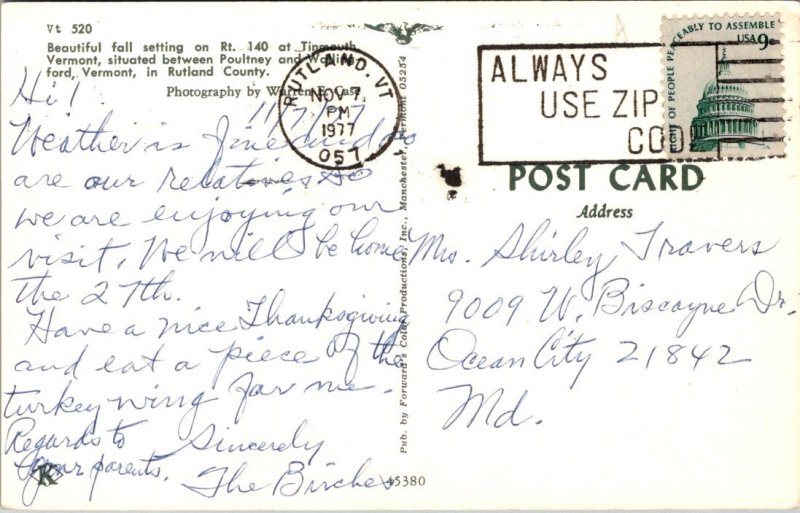 Vt 520
Beautiful fall setting on Rt. 140 at Tinmouth,
Vermont, situated between Poultney and Walling-
ford, Vermont, in Rutland County.
Photography by Warren E. Case
Hi!
11/7/77
Weather is fine and so
are our relatives so
we are enjoying our
visit. We will be home
the 27th.
Have a nice Thanksgiving
and eat a piece of the
turkey wing for me.
Regards to
your parents.
Sincerely
The Birches
K
RUTLAND, VT
NOV 7
PM
1977
057
ALWAYS
USE ZIP
CO
RIGHT OF PEOPLE PEACEABLY TO ASSEMBLE
USA 9c
POST CARD
Address
Mrs. Shirley Travers
9009 W. Biscayne Dr.
Ocean City 21842
Md.
Pub. by Forward's Color Productions, Inc., Manchester, Vermont 05254
45380